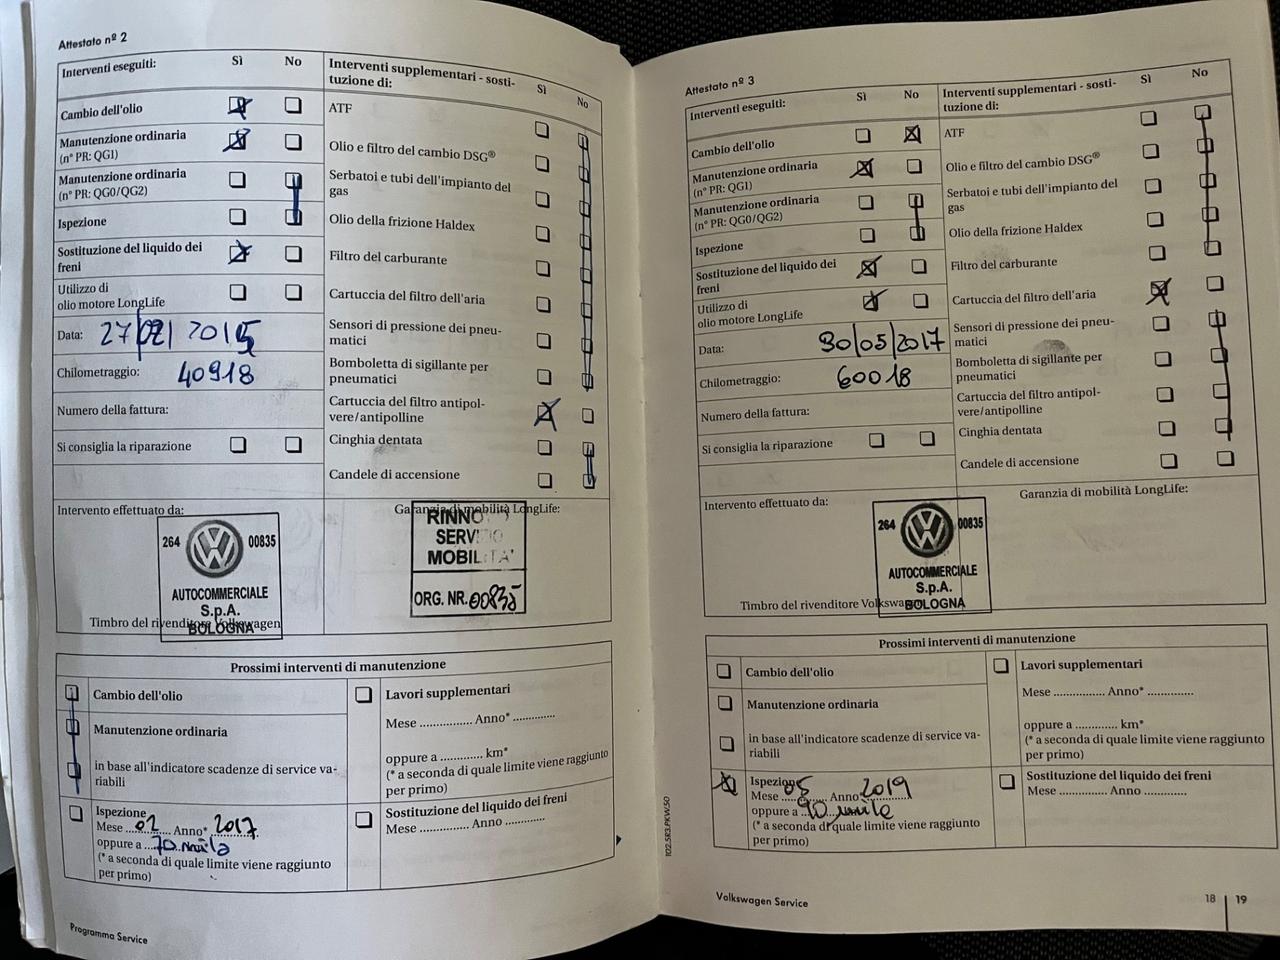 Attestato nº 2
Interventi eseguiti: Sì No
Cambio dell'olio
Manutenzione ordinaria
(n° PR: QG1)
Manutenzione ordinaria
(n° PR: QG0/QG2)
Ispezione
Sostituzione del liquido dei
freni
Utilizzo di
olio motore LongLife
Data: 27/02/2015
Chilometraggio: 40918
Numero della fattura:
Si consiglia la riparazione
Interventi supplementari - sosti-
tuzione di: Sì No
ATF
Olio e filtro del cambio DSG®
Serbatoi e tubi dell'impianto del
gas
Olio della frizione Haldex
Filtro del carburante
Cartuccia del filtro dell'aria
Sensori di pressione dei pneu-
matici
Bomboletta di sigillante per
pneumatici
Cartuccia del filtro antipol-
vere/antipolline
Cinghia dentata
Candele di accensione
Intervento effettuato da:
264 00835
AUTOCOMMERCIALE
S.p.A.
BOLOGNA
Timbro del rivenditore Volkswagen
Garanzia di mobilità LongLife:
RINNOVO
SERVIZIO
MOBILITA'
ORG. NR. 00835
Prossimi interventi di manutenzione
Cambio dell'olio
Manutenzione ordinaria
in base all'indicatore scadenze di service va-
riabili
Ispezione
Mese ... 02 ... Anno* 2017
oppure a ... 70 mila
(* a seconda di quale limite viene raggiunto
per primo)
Lavori supplementari
Mese ................ Anno* .............
oppure a ............. km*
(* a seconda di quale limite viene raggiunto
per primo)
Sostituzione del liquido dei freni
Mese ................ Anno .............
Programma Service
Attestato nº 3
Interventi eseguiti: Sì No
Cambio dell'olio
Manutenzione ordinaria
(n° PR: QG1)
Manutenzione ordinaria
(n° PR: QG0/QG2)
Ispezione
Sostituzione del liquido dei
freni
Utilizzo di
olio motore LongLife
Data: 30/05/2017
Chilometraggio: 60018
Numero della fattura:
Si consiglia la riparazione
Interventi supplementari - sosti-
tuzione di: Sì No
ATF
Olio e filtro del cambio DSG®
Serbatoi e tubi dell'impianto del
gas
Olio della frizione Haldex
Filtro del carburante
Cartuccia del filtro dell'aria
Sensori di pressione dei pneu-
matici
Bomboletta di sigillante per
pneumatici
Cartuccia del filtro antipol-
vere/antipolline
Cinghia dentata
Candele di accensione
Intervento effettuato da:
264 00835
AUTOCOMMERCIALE
S.p.A.
BOLOGNA
Timbro del rivenditore Volkswagen
Garanzia di mobilità LongLife:
Prossimi interventi di manutenzione
Cambio dell'olio
Manutenzione ordinaria
in base all'indicatore scadenze di service va-
riabili
Ispezione
Mese ... 05 ... Anno 2019
oppure a ... 90 mila
(* a seconda di quale limite viene raggiunto
per primo)
Lavori supplementari
Mese ................ Anno* .............
oppure a ............. km*
(* a seconda di quale limite viene raggiunto
per primo)
Sostituzione del liquido dei freni
Mese ................ Anno .............
102.5R3.PKW.50
Volkswagen Service
18 | 19